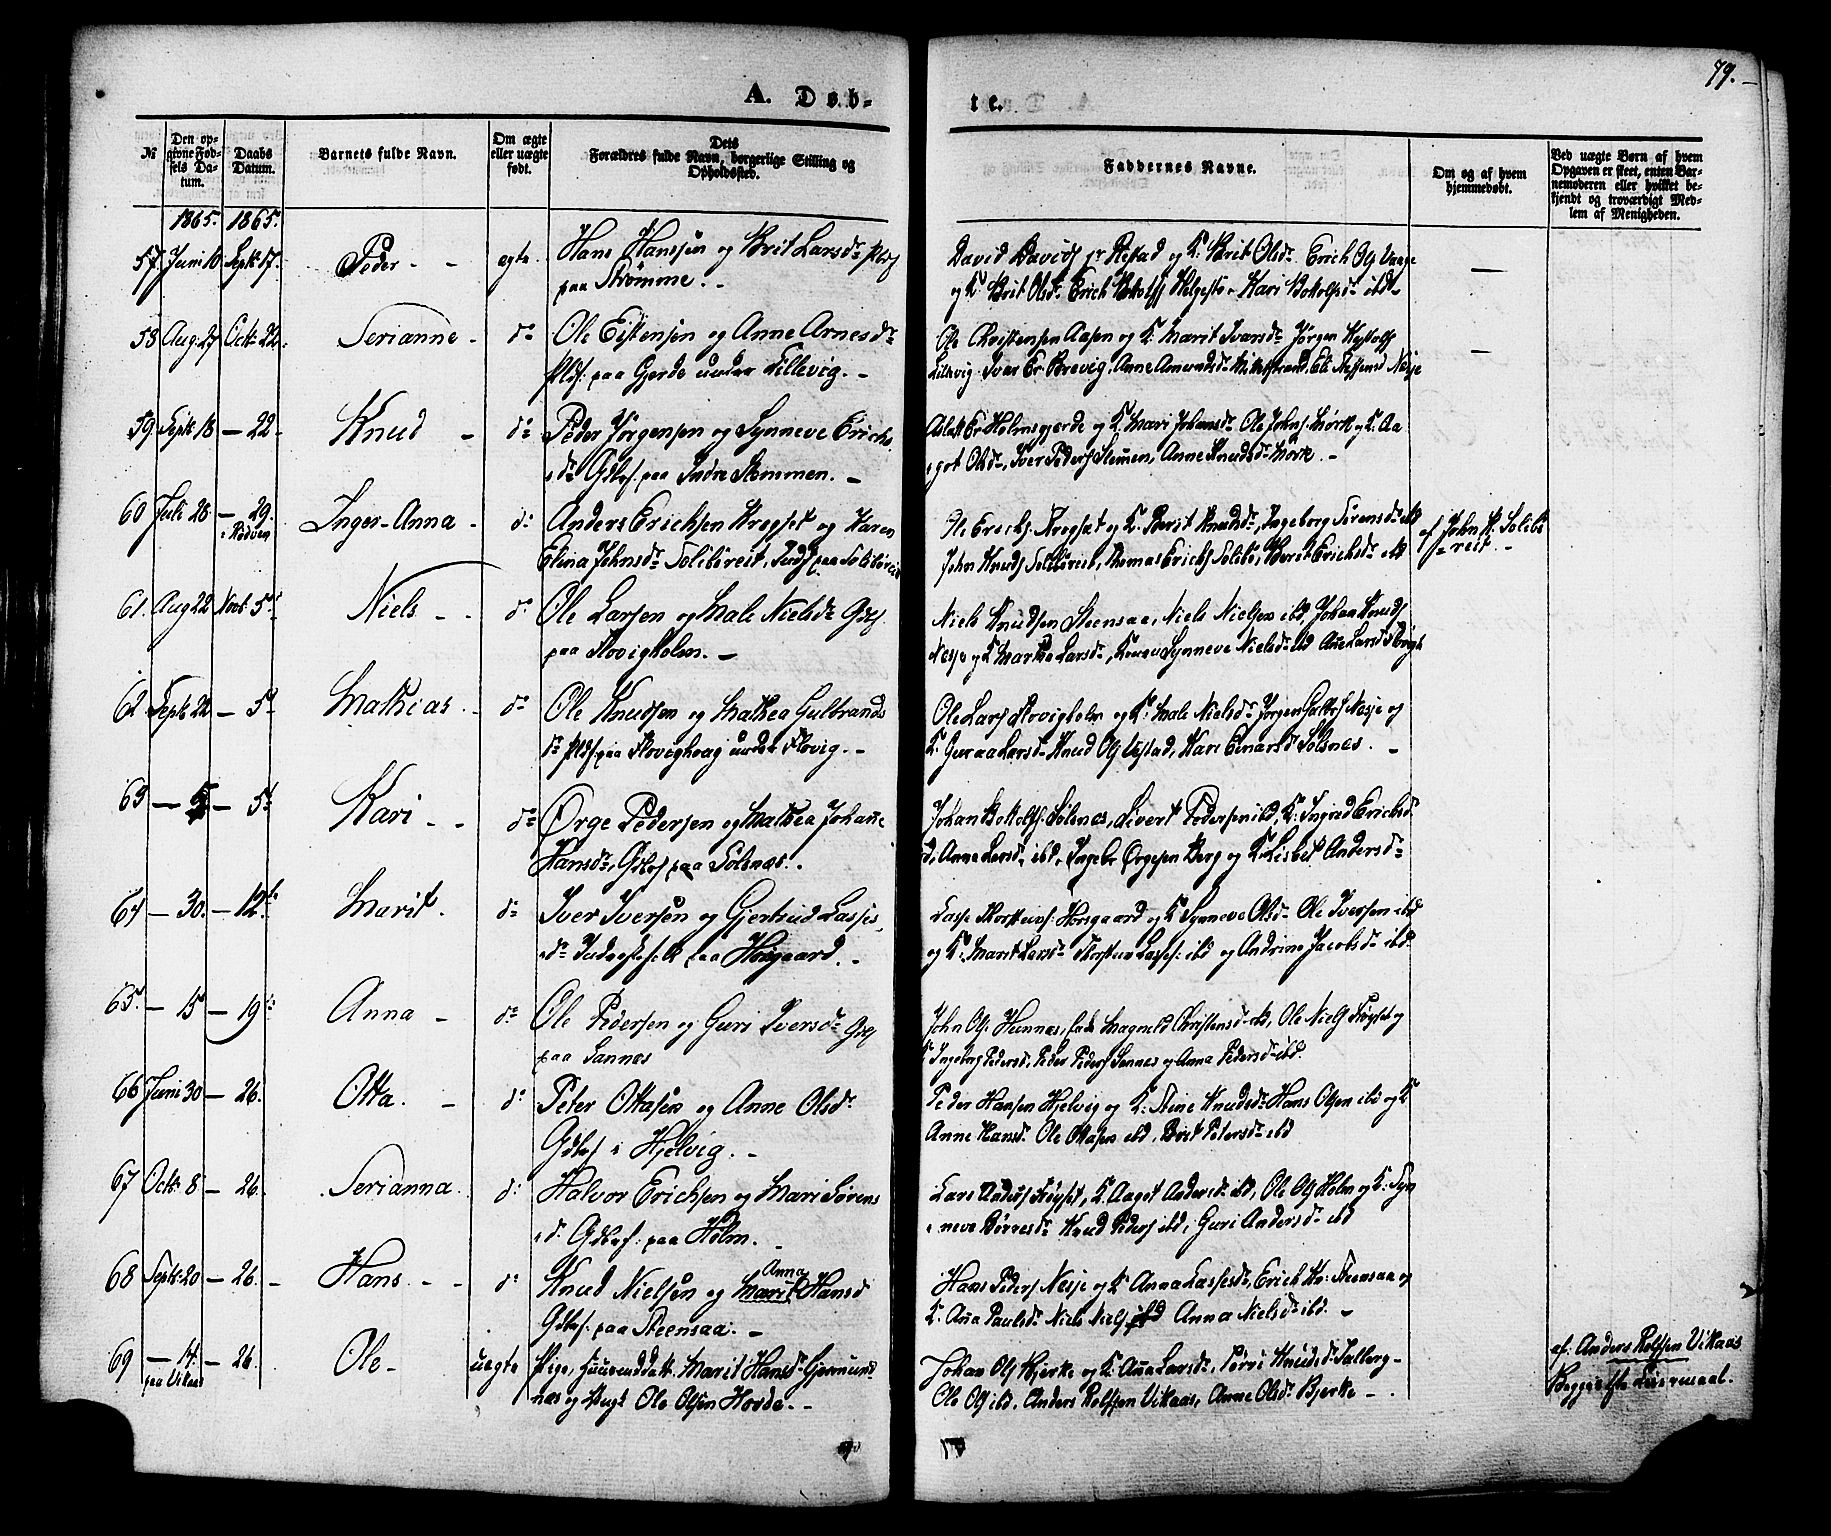 79.
A. Døb-
te.
№
Den op-
givne Fød-
sels Da-
tum.
Daabs
Datum.
Barnets fulde Navn.
Om ægte
eller uægte
født.
Dets
Forældres fulde Navn, borgerlige Stilling og
Opholdssted.
Faddernes Navne.
Om og af hvem
hjemmedøbt.
Ved uægte Børn af hvem
Opgaven er skeet, enten Bar-
nemoderen eller hvilket be-
kjendt og troværdigt Med-
lem af Menigheden.
1865. 1865.
57. Juni 10 Sept. 17. Peder - - ægte. Hans Hanssen og Brit Larsdr
paa Strømme. -
David Davids Restad og K. Brit Olsdr Erich Ols Vaage
og K Brit Olsdr Erich Helgestø Kari ibd -
58 Aug. 27 Octb. 22. Serianne - do Ole Eistensen og Anne Arnesdr
Plds. paa Gjerde under Lillevig. -
Ole Christensen Aasen og K. Marit Ivarsdr Jørgen
Lillevig Ivar Er. Brevig, Anne Amundsdr Nesje
59. Septb 18 - 22. Knud - do Peder Jørgensen og Synneve Erichs
dr Gdbrf. paa Indre Stemmen. -
Aslak Er. Holmsgjerde og K. Mari Johansdr Ole Johns. Mørk og K. Aa
got Olsdr, Iver Peders Slemmen, Anne Knudsdr Mørk. -
60 Juli 28 - 29. i Rødven Inger-Anna - do Anders Erichsen og Karen
Elina Johnsdr Solibøreit, Inds. paa
Ole Erichs. og K. Berit Knudsdr, Ingeborg Sørensdr ibd
John Knuds Thomas Erichs Berit Erichsdr ibd
af John K. Solibø
reit. -
61. Aug 22 Novb. 5te Niels - - do Ole Larsen og Male Nielsdr Gds
paa Flovigholm. -
Niels Knudsen Steensaa, Niels Nielsen ibd, Johan Knuds
Nesje og K Martha Larsdr, Synneve Nielsdr ibd
62 Septb 22 - 5te Mathias. - do Ole Knudsen og Mathea Gulbrands
dr Plds. paa Flovighoug under Flovig. -
Ole Lars Flovigholm og K. Male Nielsdr Jørgen Nesje og
K. Guraa Larsdr Knud Ols Ustad, Kari Einarsdr Solsnes. -
63 - 5 - 5te Kari - - do Ørge Pedersen og Mathea Johanne
Hansdr, Gdbrf. paa Solsnæs. -
Johan Solsnes, Sivert Pedersen ibd, K. Ingred Erichsd
Anne Larsdr ibd, Ingebr Ørgesen Berg og K. Lisbet Andersdr
64 - 30. - 12te Marit. do Iver Iversen og Gjertrud Lasses
dr paa Horsgaard. -
Lasse Horsgaard og K Synneve Olsdr Ole Iversen ibd
og K. Marit Larsdr Lasses. ibd og Andrine Jacobsdr ibd.
65. - 15 - 19de Anna - do Ole Pedersen og Guri Iversdr Gds
paa Sannæs
John Ols Hunnæs, Magnild Christensdr ibd, Ole Niels og
K Ingeborg Pedersdr, Peder Peders Sannes og Anna Pedersdr ibd.
66 Juni 30 - 26. Otta. - do Peter Ottasen og Anne Olsdr
Gdbrf i Hjelvig. -
Peder Hansen Hjelvig og K. Stine Knudsdr Hans Olsen ibd og K
Anne Hansdr Ole Ottasen ibd, Brit Petersdr ibd
67 Octb. 8 - 26. Serianna. do Halvor Erichsen og Mari Sørens
dr Gdbrf. paa Holm. -
Lars Anders K. Aagot Andersdr ibd, Ole Ols Holm og K. Syn
neve Børresdr Knud Peders ibd, Guri Andersdr ibd
68 Septb. 20 - 26. - Hans. - - do Knud Nielsen og Marit Anna Hansd
Gdbrf. paa Steensaa. -
Hans Peders Nesje og K Anna Lassesdr, Erich Kn. Steensaa og
K. Ana Paulsdr Niels Niels ibd Anna Nielsdr ibd. -
69 - 14. - 26. Ole - uægte Pige, Marit Hansdr Gjermund
paa Vikaas
næs og Ole Olsen Hovde. -
Johan Ols Bjerke og K. Ane Larsdr, Knudsdr
Ole Ols ibd. Anders Rolfsen Vikaas, Anne Olsdr Bjerke -
af. Anders Rolfsen Vikaas
Begges 1ste Leiermaal.